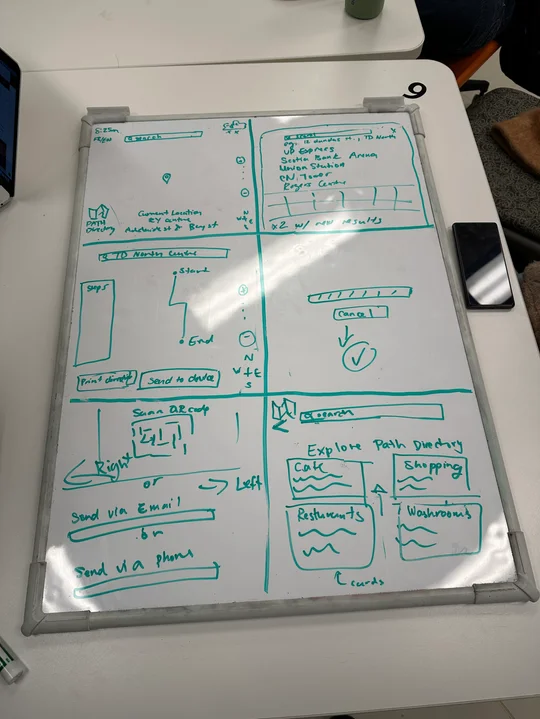 9
5:25pm
FR/EN
Search
PATH
Directory
Current Location
EY Centre
Adelaide St & Bay St
N
W+E
S
x
eg. 12 dundas st, TD North
UP Express
Scotia Bank Arena
Union Station
CN Tower
Rogers Centre
x2 w/ new results
TD North Centre
Steps
Start
End
+
-
N
W+E
S
Send to device
Cancel
Scan QR code
Right
or
Left
Send via Email
or
Send via phone
search
Explore Path Directory
Cafe
Shopping
Resturants
Washrooms
cards